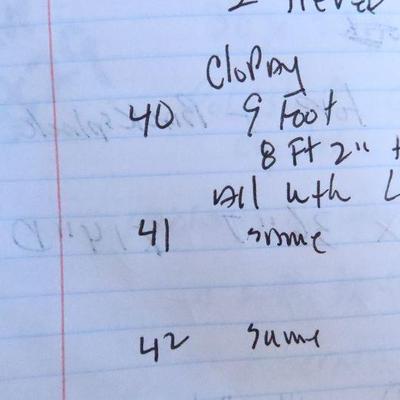 2
Clopay
40 9 Foot
8 Ft 2"
All with L
41 same
42 same